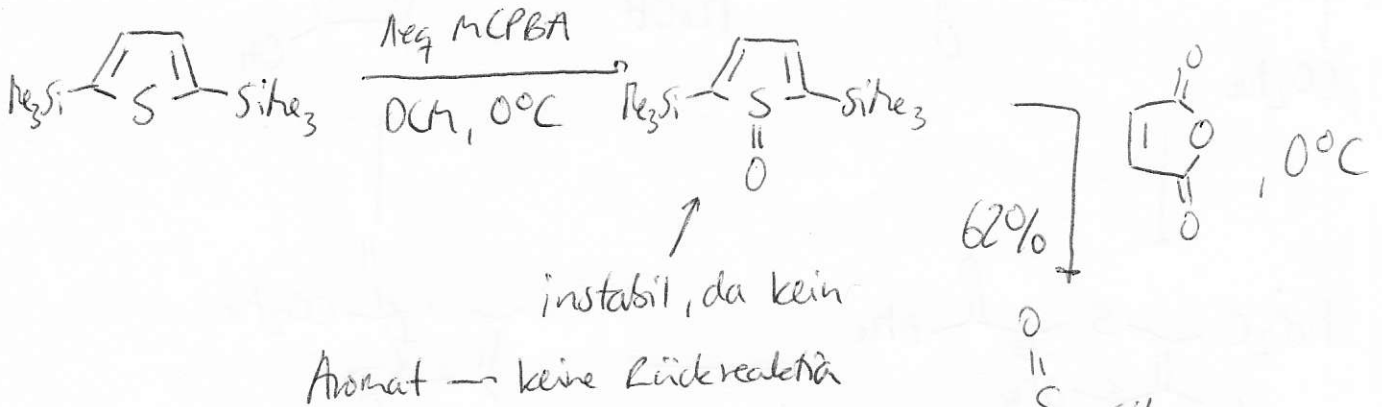 1eq MCPBA
Me₃Si S SiMe₃
DCM, 0°C
Me₃Si S SiMe₃
O
O
O
O
, 0°C
62%
instabil, da kein
Aromat — keine Rückreaktion
O
S